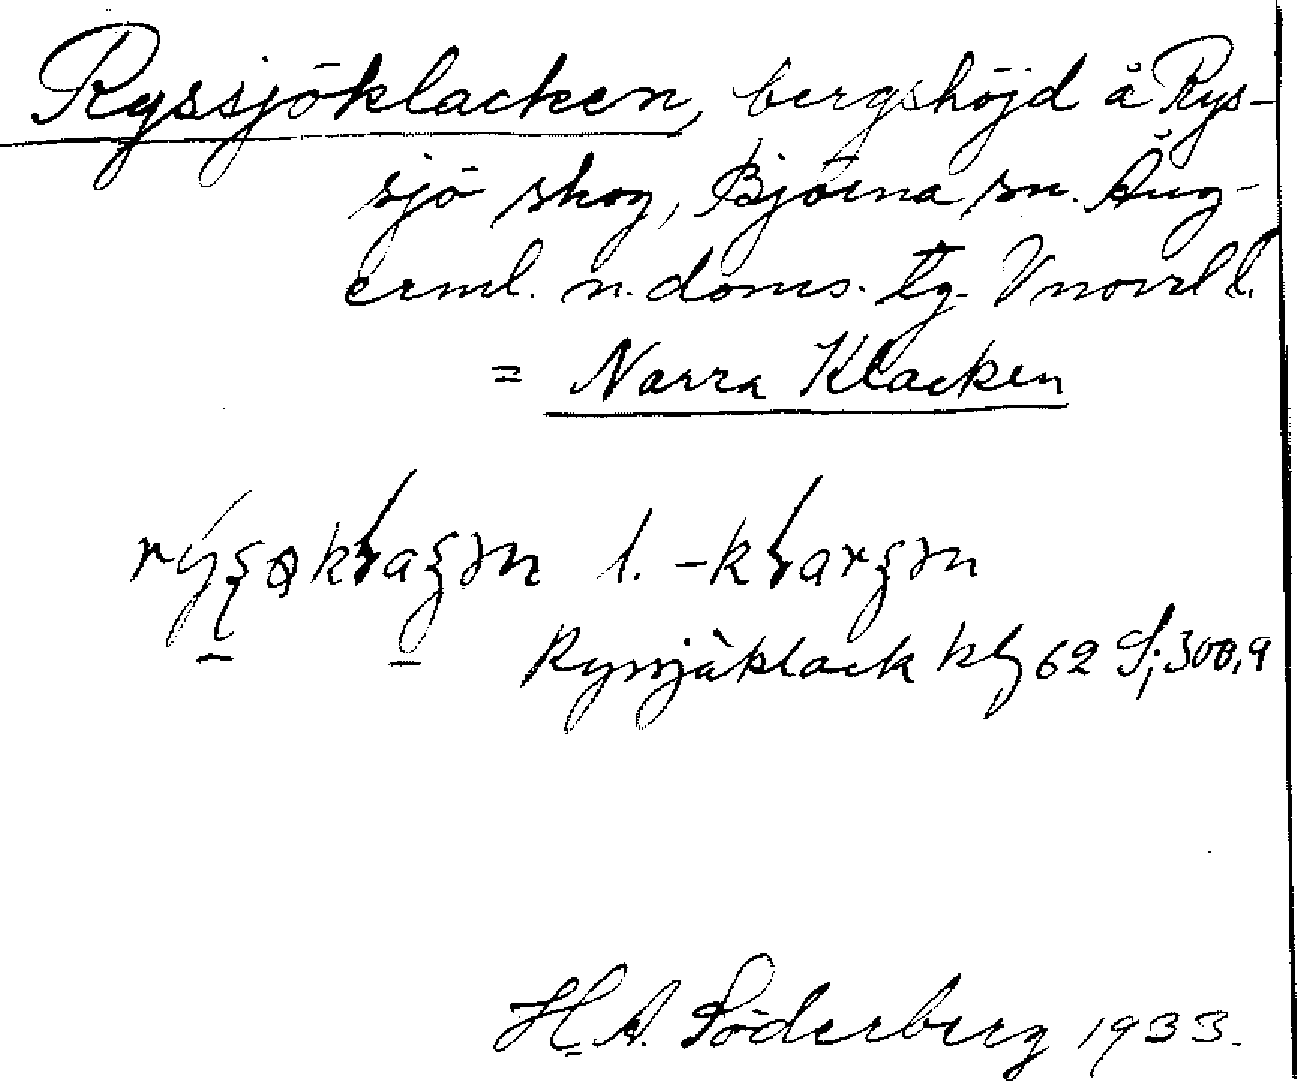 Ryssjöklacken, bergshöjd å Rys-
sjö skog, Björna sn. Ång-
erml. n. doms. tg. Vnorrl l.
= Norra Klacken
l.
Ryssjöklack kbl 62 S; 300,9
H. A. Söderberg 1933.